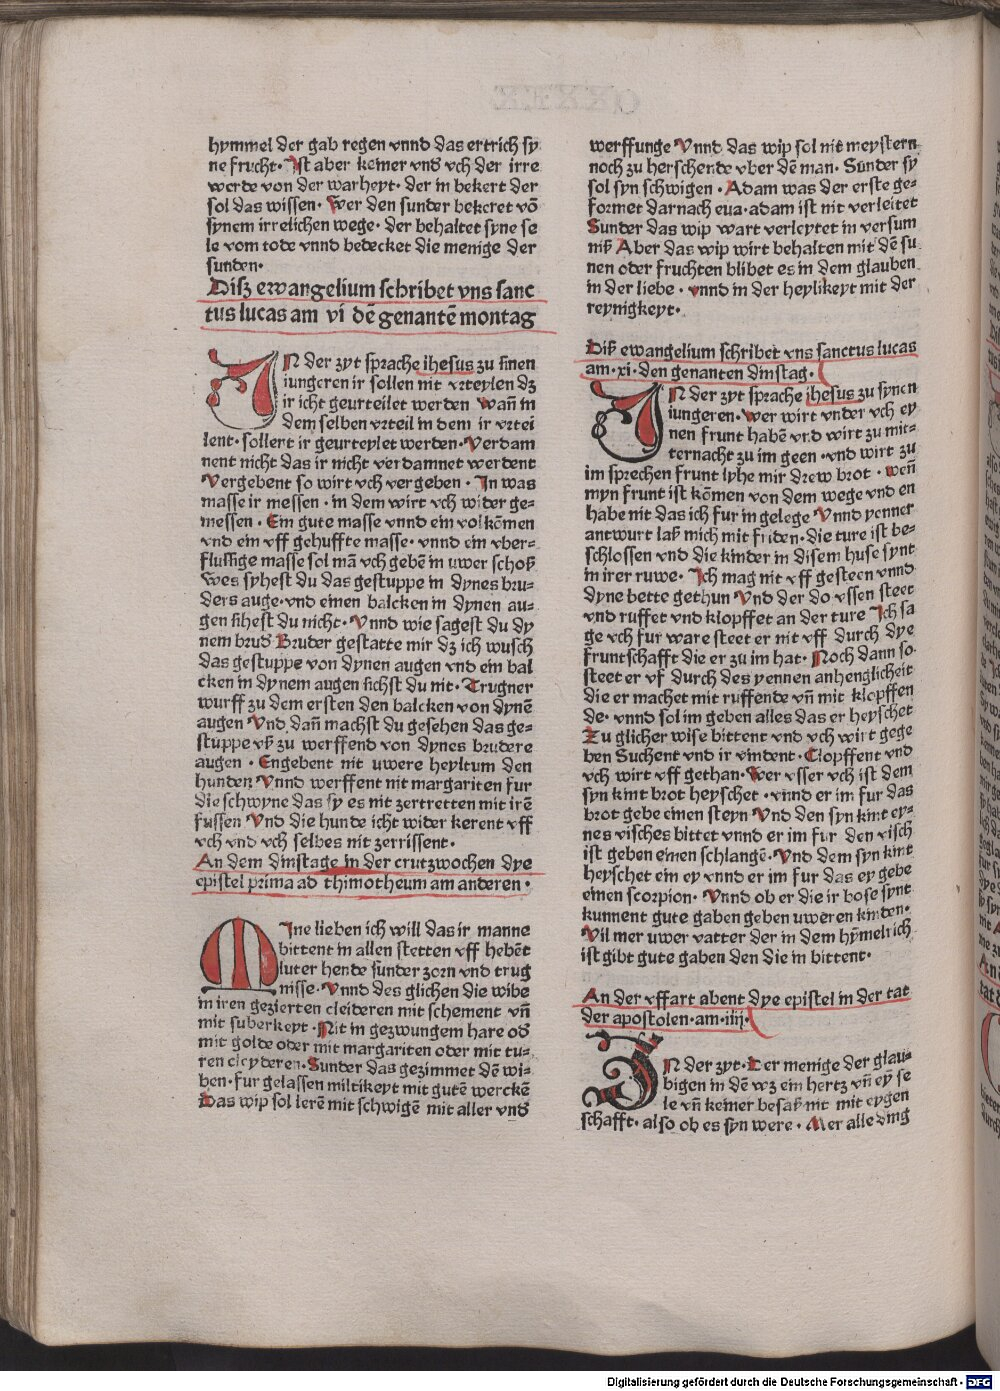 hymmel der gab regen vnnd das ertrich sy
ne frucht· Jst aber keiner vnd vch der irre
werde von der warheyt· der in bekert der
sol das wissen· Wer den sunder bekeret võ
synem irrelichen wege· der behaltet syne se
le vom tode vnnd bedecket die menige der
sunden·
Diß ewangelium schribet vns sanc
tus lucas am vi dē genantē montag
JN der zyt sprache ihesus zu sinen
iungeren ir sollen nit vrteylen dz
ir icht geurteilet werden Wañ in
dem selben vrteil in dem ir vrtei
lent· sollent ir geurteylet werden· Verdam
nent nicht das ir nicht verdamnet werdent
Vergebent so wirt vch vergeben· Jn was
masse ir messen· in dem wirt vch wider ge⸗
messen· Ein gute masse vnnd ein vol kōmen
vnd ein vff gehuffte masse· vnnd ein vber⸗
flussige masse sol mā vch gebē in uwer schoß
Wes syhest du das gestuppe in dynes bru⸗
ders auge· vnd einen balcken in dynen au⸗
gen sihest du nicht· Vnnd wie sagest du dy
nem brud Bruder gestatte mir dz ich wusch
das gestuppe von dynen augen vnd ein bal
cken in dynem augen sichst du nit· Trugner
wurff zu dem ersten den balcken von dynē
augen Vnd dañ machst du gesehen das ge⸗
stuppe vß zu werffend von dynes brudere
augen· Engebent nit uwere heyltum den
hunden Vnnd werffent nit margariten fur
die schwyne das sy es nit zertretten mit irē
fussen Vnd die hunde icht wider kerent vff
vch vnd vch selbes nit zerrissent·
An dem dinstage in der crutzwochen dye
epistel prima ad thimotheum am anderen·
MIne lieben ich will das ir manne
bittent in allen stetten vff hebēt
luter hende sunder zorn vnd trug
nisse· Vnnd des glichen die wibe
in iren gezierten cleideren mit schement vñ
mit suberkeyt· Nit in gezwungem hare od
mit golde oder mit margariten oder mit tu⸗
ren cleyderen· Sunder das gezimmet dē wi⸗
ben· fur gelassen miltikeyt mit gutē werckē
Das wip sol lerē mit schwigē mit aller vnd
werffunge Vnnd das wip sol nit meystern
noch zu herschende vber dē man· Sunder sy
sol syn schwigen· Adam was der erste ge⸗
formet darnach eua· adam ist nit verleitet
Sunder das wip wart verleytet in versum
niß Aber das wip wirt behalten mit dē su
nen oder fruchten blibet es in dem glauben
in der liebe· vnnd in der heylikeyt mit der
reynigkeyt·
Diß ewangelium schribet vns sanctus lucas
am·xi·den genanten dinstag·
JN der zyt sprache ihesus zu synen
iungeren· Wer wirt vnder vch ey
nen frunt habē vnd wirt zu mit⸗
ternacht zu im geen· vnd wirt zu
im sprechen frunt lyhe mir drew brot· weñ
myn frunt ist kōmen von dem wege vnd en
habe nit das ich fur in gelege Vnnd yenner
antwurt laß mich mit friden· die ture ist be⸗
schlossen vnd die kinder in disem huse synt
in irer ruwe· Jch mag nit vff gesteen vnnd
dyne bette gethun Vnd der do vssen steet
vnd ruffet vnd klopffet an der ture Jch sa
ge vch fur ware steet er nit vff durch dye
fruntschafft die er zu im hat· Noch dann so
steet er vf durch des yennen anhenglicheit
die er machet mit ruffende vñ mit klopffen
de· vnnd sol im geben alles das er heyschet
Zu glicher wise bittent vnd vch wirt gege
ben Suchent vnd ir vindent· Clopffent vnd
vch wirt vff gethan· Wer vsser vch ist dem
syn kint brot heyschet· vnnd er im fur das
brot gebe einen steyn Vnd den syn kint ey⸗
nes visches bittet vnnd er im fur den visch
ist geben einen schlangē· Vnd dem syn kint
heyschet ein ey vnnd er im fur das ey gebe
einen scorpion· Vnnd ob er die ir bose synt
kunnent gute gaben geben uweren kinden·
Vil mer uwer vatter der in dem hȳmelrich
ist gibt gute gaben den die in bittent·
An der vffart abent dye epistel in der tat
der apostolen·am·iiij·
JN der zyt· Der menige der glau⸗
bigen in dē wz ein hertz vñ eȳ se
le vñ keiner besaß nit mit eygen
schafft· also ob es syn were· Mer alle ding
Digitalisierung gefördert durch die Deutsche Forschungsgemeinschaft - DFG